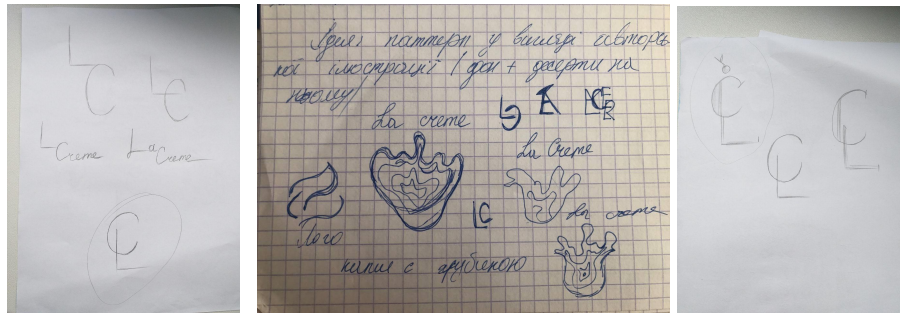 L C
L C
L Creme
La Creme
C L
Ідея: паттерн у вигляді авторсь
кої ілюстрації (фон + десерти на
ньому)
La creme
La Creme
LC
La creme
Лого
капля с глубиною
CL
CL
CL